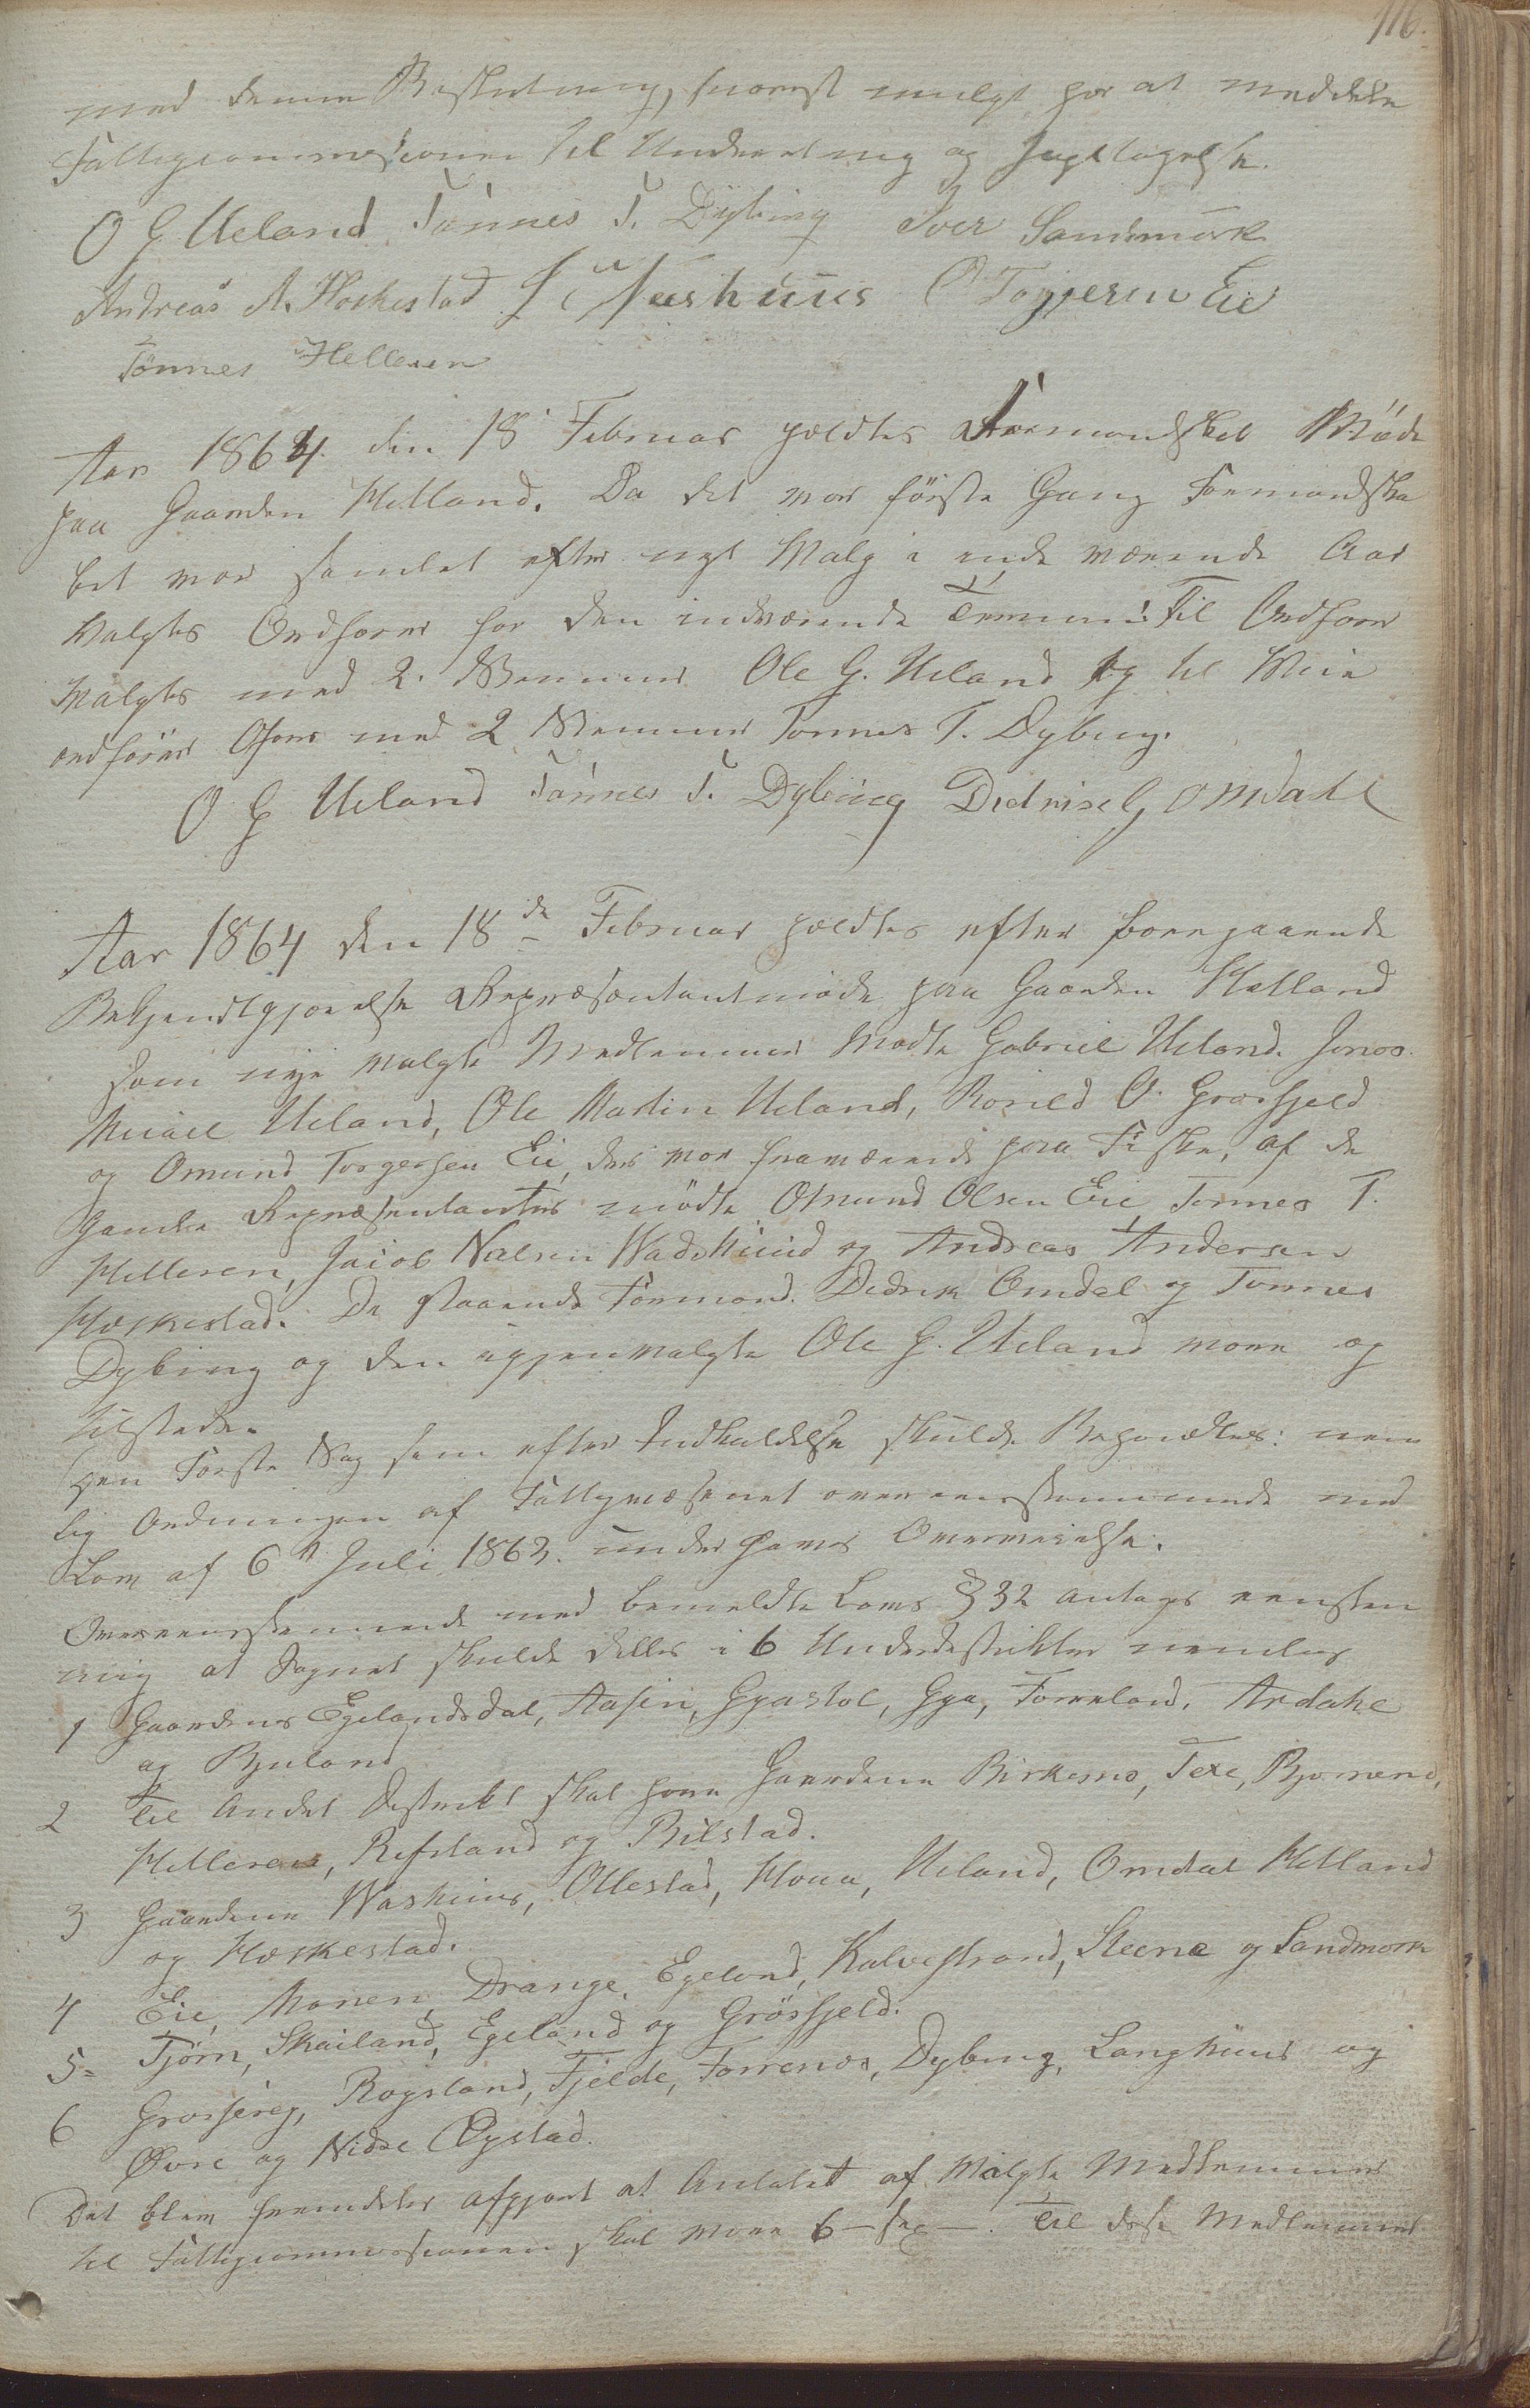 116.
med denne Beslutning, snarest muligt for at meddele
Fattigcommisionen til Underetning og Jagttagelse.
O G Ueland Tønnes T. Dybing Iver Sandsmørk
Andreas A. Hæskestad J Nashuus O Torgersen Eie
Tønnes Helleren
Aar 1864. den 18 Februar holdtes Formandskab Møde
paa Gaarden Helland. Da det var første Gang Formandska
bet var samlet efter nyt Valg i inde værende Aar
valgtes Ordfører for den indværende Termin! Til Ordfører
valgtes med 2. Stemmer Ole G. Ueland og til Vice
ordfører med 2 Stemmer Tønnes T. Dybing.
O G Ueland Tønnes T. Dybing Didrik G Omdahl
Aar 1864 den 18de Februar holdtes efter foregaaende
Bekjendtgjørelse Repræsentantmøde paa Gaarden Helland
som nye valgte Medlemmer mødte Gabriel Ueland. Jonas
Micael Ueland, Ole Martin Ueland, Roaild O. Grøsfjeld
og Omund Torgersen Eie, der var fraværende paa Fiske, af de
gamle Repræsentanter mødte Omund Olsen Eie, Tønnes T.
Helleren, Jacob Nelsen Wadshuus og Andreas Andersen
Hæskestad. De staaende Formænd. Didrik Omdal og Tønnes
Dybing og den igjenvalgte Ole G. Ueland vare og
tilstede.
Den Første Sag som efter Indkaldelse skulde Behandles: nem
lig Ordningen af Fattigvæsenet overensstemmende med
Lov af 6te Juli 1863. under hans Overveielse.
Overeensstemmende med bemeldte Lovs § 32 antages eenstem
mig at Sognet skulde deles i 6 Underdistrikter nemlig
1 Gaardene Egelandsdal, Aasen, Gyastøl, Gya, Tarreland, Ardahl
og Bjuland
2 Til Andet Distrikt skal høre Gaardene Birkemo, Texe, Bjørnend,
Helleren, Refsland og Bilstad.
3 Gaardene Washuus, Ollestad, Hova, Ueland, Omdal Helland
og Hæskestad.
4 Eie, Monen, Drange, Egeland, Kalvestrand, Steene og Sandmork
5= Tjørn, Skailand, Egeland og Grøsfjeld.
6 Grøsereg, Rogsland, Fjelde, Torrenæs, Dybing, Langhuus og
Øvre og Nidre Øgstad.
Det blev fremdeles afgjort at Antalet af valgte Medlemmer
til Fattigcommissionen skal være 6 – sex –. Til disse Medlemmer